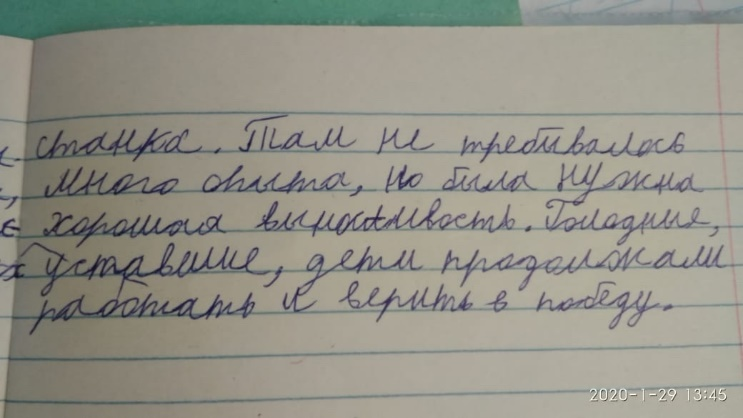 станка. Там не требывалось
много опыта, но была нужна
хорошая выносливость. Голодные,
уставшие, дети продолжали
работать и верить в победу.
2020-1-29 13:45